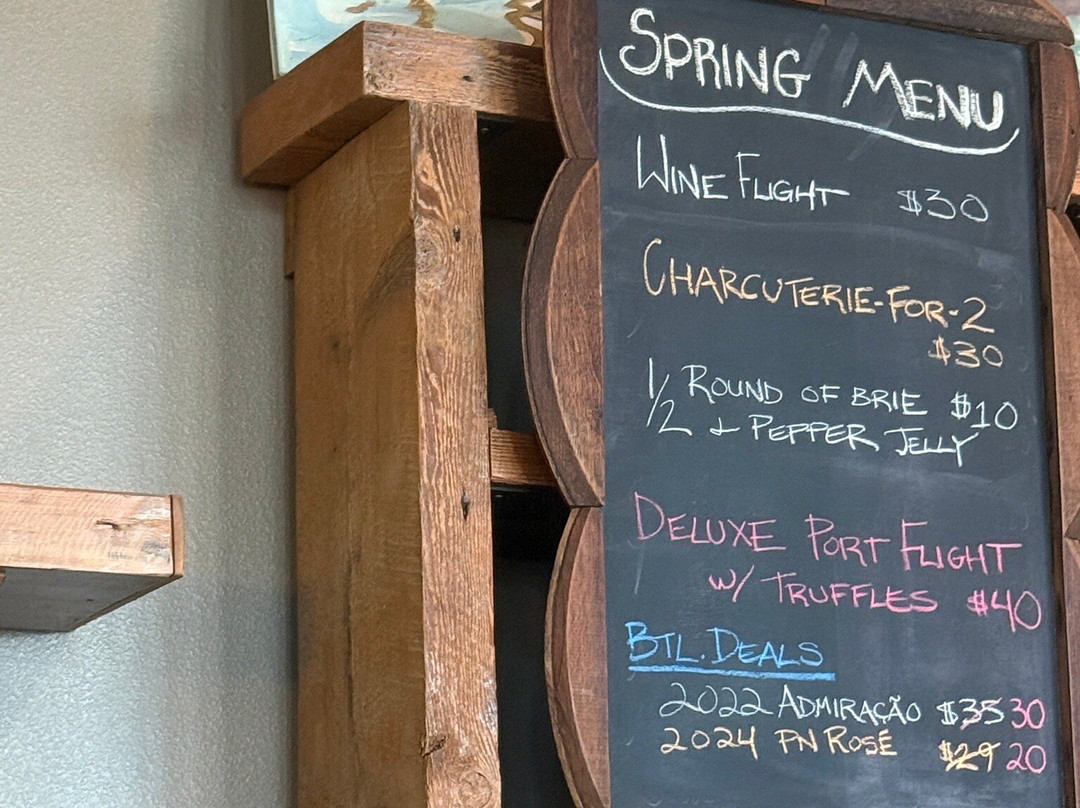 SPRING MENU
WINE FLIGHT $30
CHARCUTERIE-FOR-2
$30
1/2 ROUND OF BRIE $10
& PEPPER JELLY
DELUXE PORT FLIGHT
W/ TRUFFLES $40
BTL. DEALS
2022 ADMIRAÇÃO $35 30
2024 PN ROSÉ $29 20